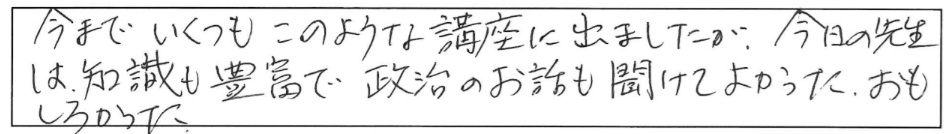 今まで いくつも このような講座に出ましたが、今日の先生
は、知識も豊富で 政治のお話も聞けてよかった。おも
しろかった